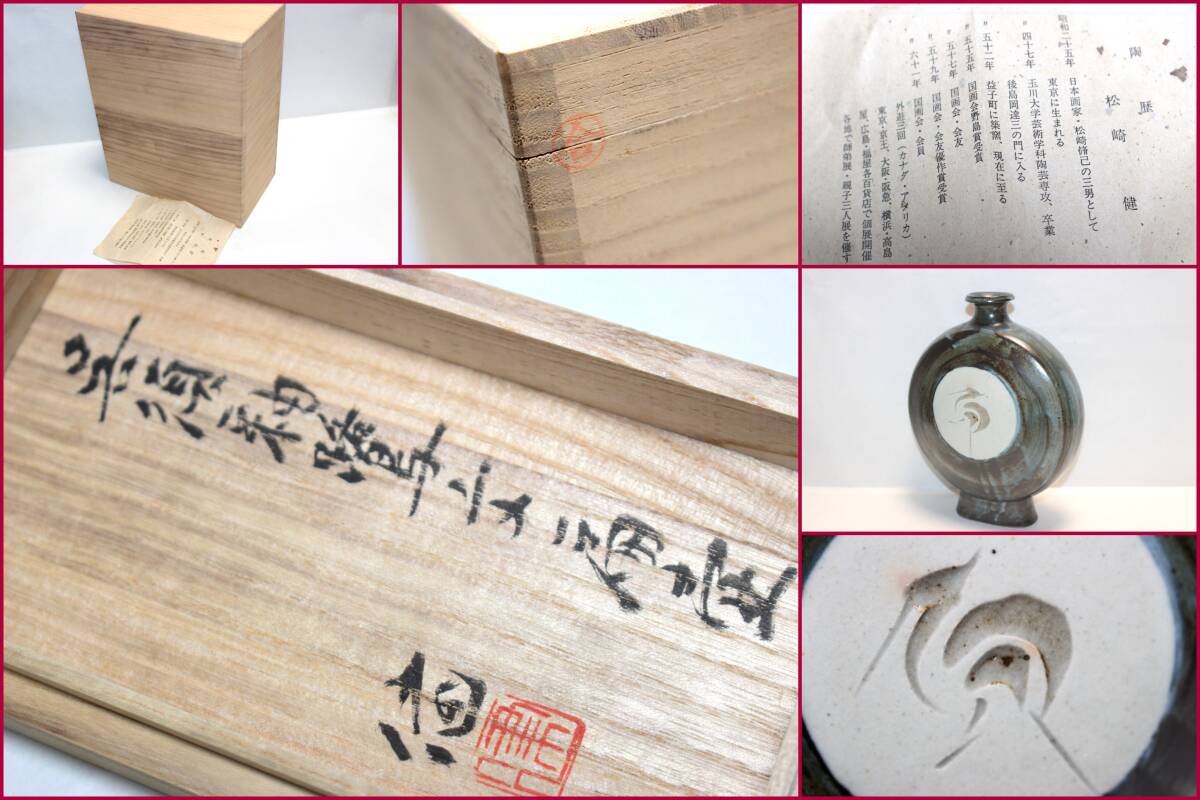 陶歴
松崎 健
昭和二十五年 日本画家・松崎脩己の三男として
東京に生まれる
〃 四十七年 玉川大学芸術学科陶芸専攻、卒業
後島岡達三の門に入る
〃 五十二年 益子町に築窯、現在に至る
〃 五十五年 国画会野島賞受賞
〃 五十七年 国画会・会友
〃 五十九年 国画会・会友優作賞受賞
〃 六十一年 国画会・会員
外遊三回(カナダ・アメリカ)
東京・京王、大阪・阪急、横浜・高島
屋、広島・福屋各百貨店で個展開催
各地で師弟展・親子三人展を催す
呉須釉
健